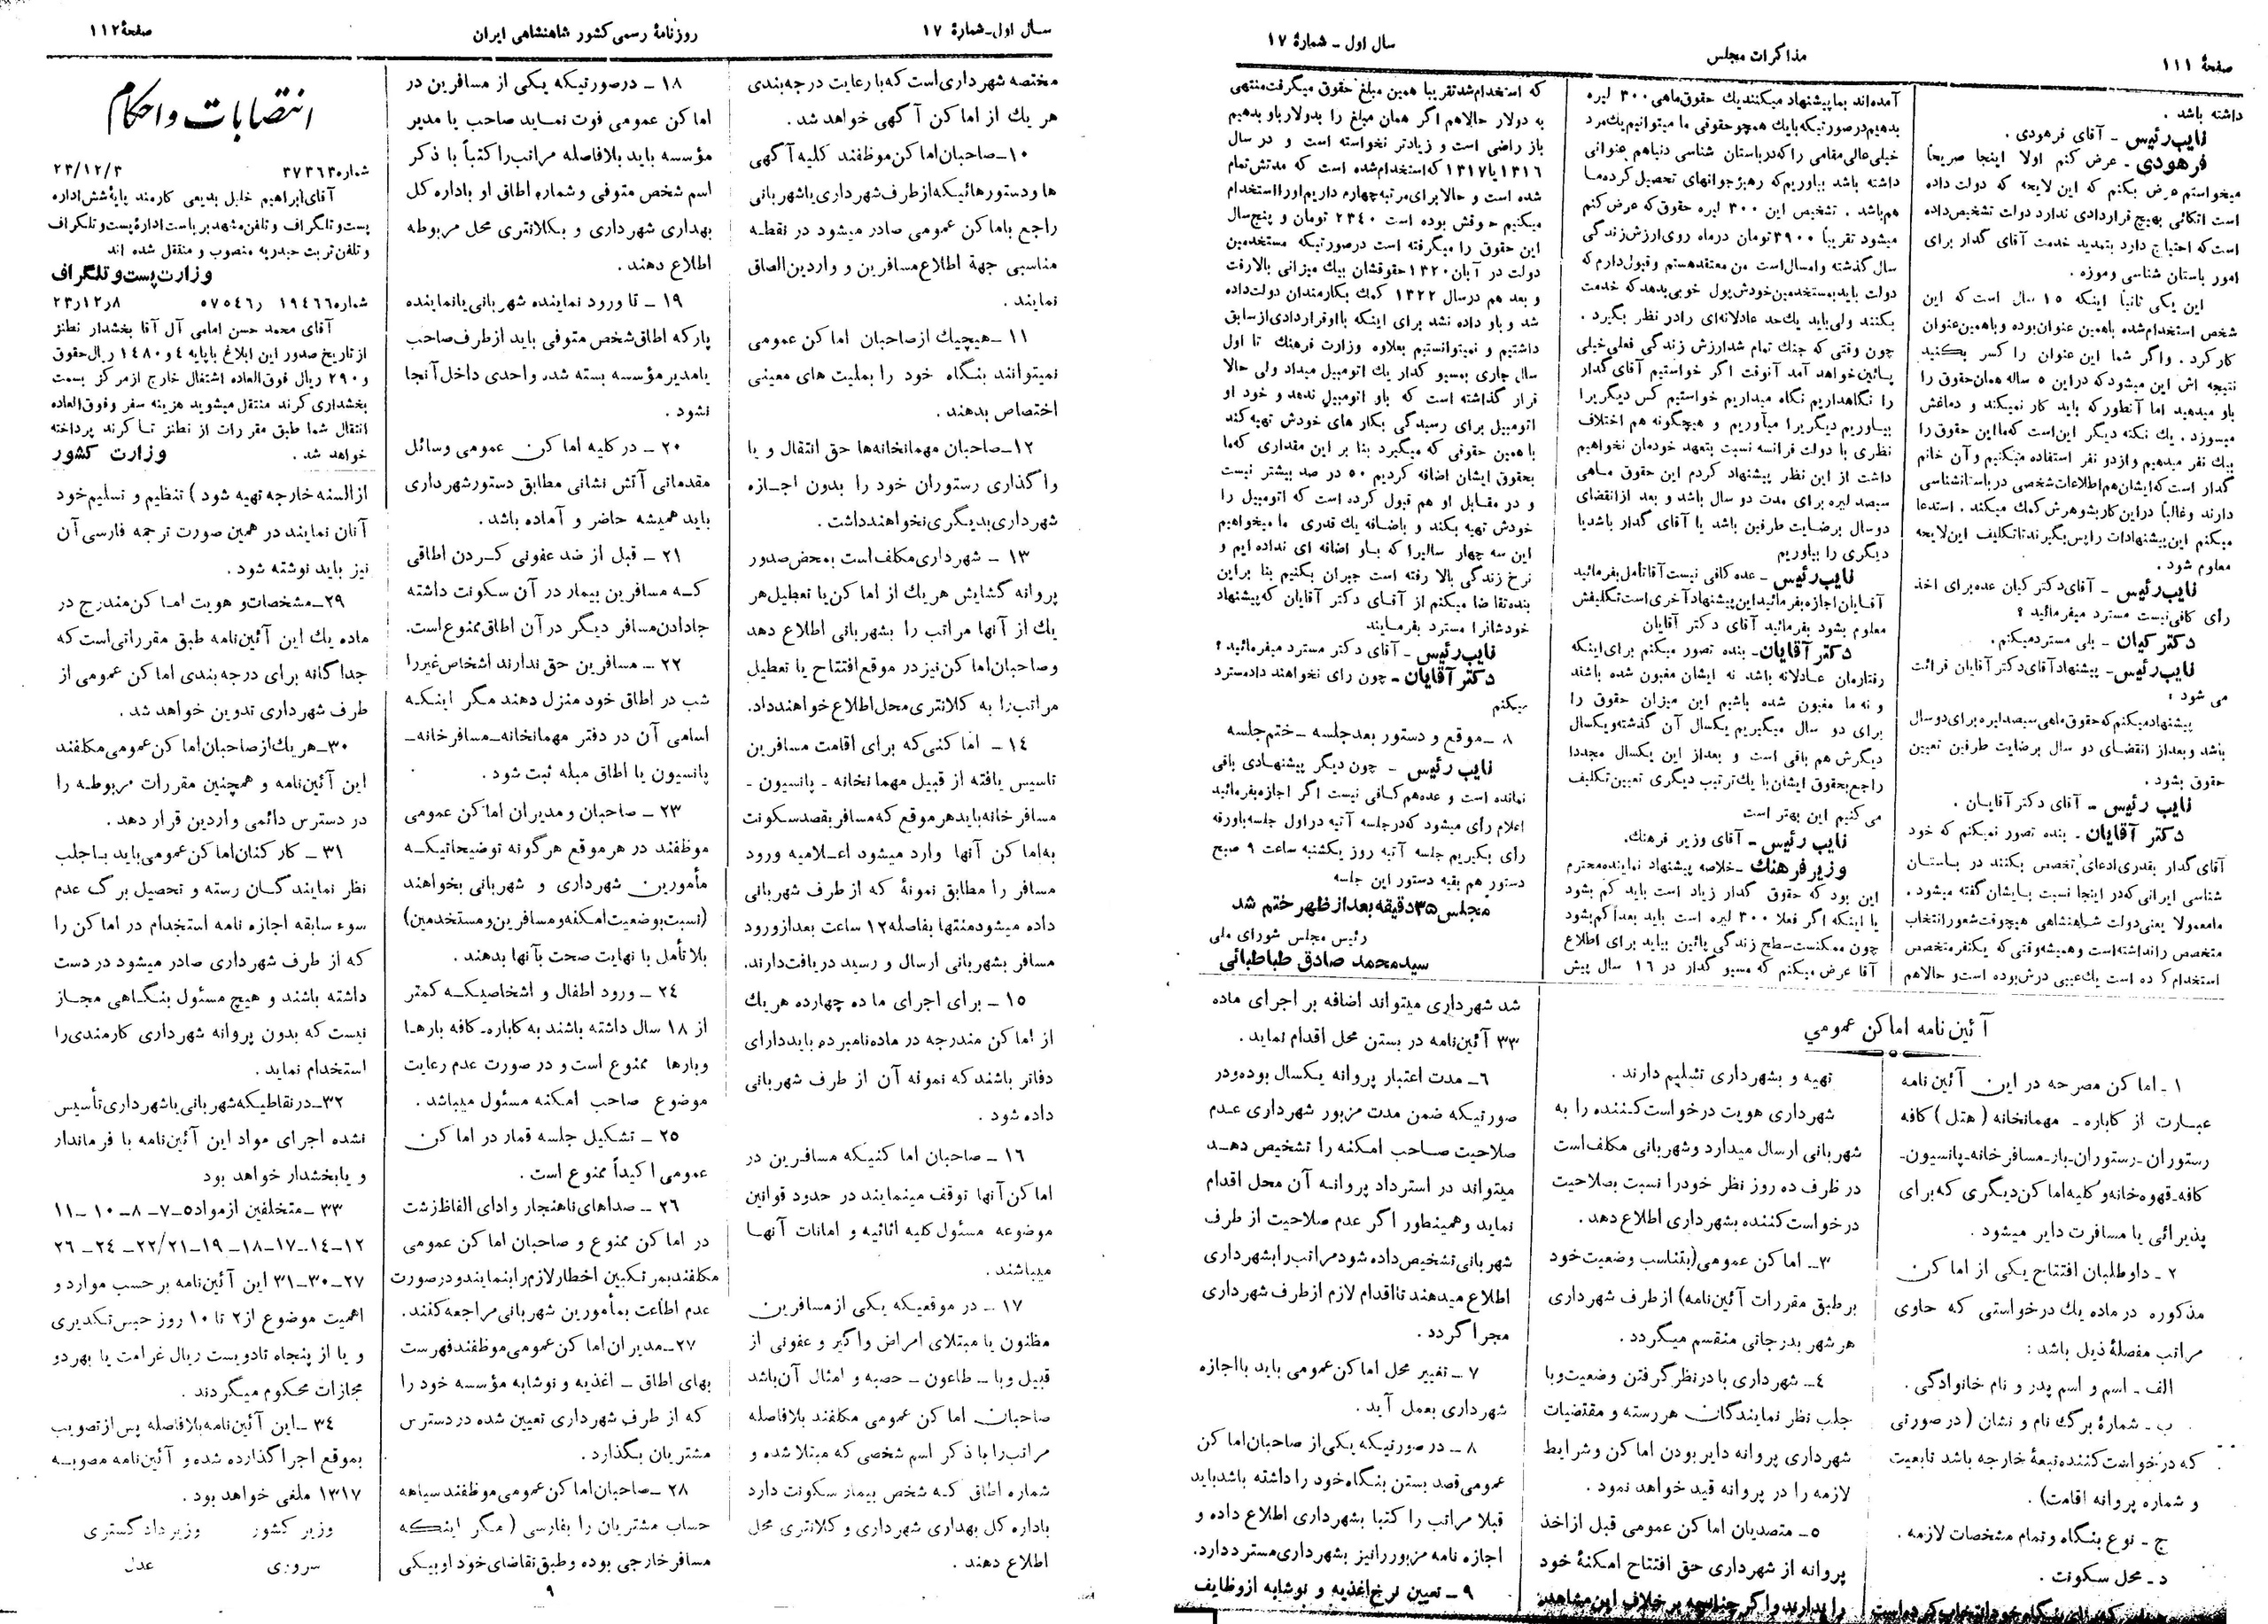 صفحهٔ ۱۱۱
مذاکرات مجلس
سال اول ـ شمارهٔ ۱۷
داشته باشد .
نایب رئیس ـ آقای فرهودی .
فرهودی ـ عرض کنم اولا اینجا صریحاً
میخواستم عرض بکنم که این لایحه که دولت داده
است اتکائی بهیچ قراردادی ندارد دولت تشخیص داده
است که احتیاج دارد بتمدید خدمت آقای گدار برای
امور باستان شناسی و موزه .
این یکی ثانیاً اینکه ۱۵ سال است که این
شخص استخدام شده باهمین عنوان بوده و باهمین عنوان
کار کرد . و اگر شما این عنوان را کسر بکنید
نتیجه اش این میشود که در این ۵ ساله همان حقوق را
باو میدهید اما آنطور که باید کار نمیکند و دماغش
میسوزد . یك نکته دیگر این است که ما این حقوق را
بیك نفر میدهیم و از دو نفر استفاده میکنیم و آن خانم
گدار است که ایشان هم اطلاعات شخصی در باستانشناسی
دارند و غالباً در این کار بشوهرش کمك میکند . استدعا
میکنم این پیشنهادات را پس بگیرند تا تکلیف این لایحه
معلوم شود .
نایب رئیس ـ آقای دکتر کیان عده برای اخذ
رأی کافی نیست مسترد میفرمائید ؟
دکتر کیان ـ بلی مسترد میکنم .
نایب رئیس ـ پیشنهاد آقای دکتر آقایان قرائت
می شود :
پیشنهاد میکنم که حقوق ماهی سیصد لیره برای دو سال
باشد و بعد از انقضای دو سال برضایت طرفین تعیین
حقوق بشود .
نایب رئیس ـ آقای دکتر آقایان .
دکتر آقایان ـ بنده تصور نمیکنم که خود
آقای گدار بقدری ادعای تخصص بکنند در باستان
شناسی ایرانی که در اینجا نسبت بایشان گفته میشود .
ما معمولا یعنی دولت شاهنشاهی هیچوقت شعور انتخاب
متخصص را نداشته است و همیشه وقتی که یکنفر متخصص
استخدام کرده است یك عیبی درش بوده است و حالا هم
آمده اند بما پیشنهاد میکنند یك حقوق ماهی ۳۰۰ لیره
بدهیم در صورتیکه با یك همچو حقوقی ما میتوانیم یك مرد
خیلی عالی مقامی را که در باستان شناسی دنیا هم عنوانی
داشته باشد بیاوریم که رهبر جوانهای تحصیل کرده ما
هم باشد . تشخیص این ۳۰۰ لیره حقوق که عرض کنم
میشود تقریباً ۳۹۰۰ تومان در ماه روی ارزش زندگی
سال گذشته و امسال است من معتقد هستم و قبول دارم که
دولت باید بمستخدمین خودش پول خوبی بدهد که خدمت
بکنند ولی باید یك حد عادلانه ای را در نظر بگیرد .
چون وقتی که جنك تمام شد ارزش زندگی فعلی خیلی
پائین خواهد آمد آنوقت اگر خواستیم آقای گدار
را نگاهداریم نگاه میداریم خواستیم کس دیگری را
بیاوریم دیگری را میآوریم و هیچگونه هم اختلاف
نظری با دولت فرانسه نسبت بتعهد خودمان نخواهیم
داشت از این نظر پیشنهاد کردم این حقوق ماهی
سیصد لیره برای مدت دو سال باشد و بعد از انقضای
دو سال برضایت طرفین باشد یا آقای گدار باشد یا
دیگری را بیاوریم
نایب رئیس ـ عده کافی نیست آقا تأمل بفرمائید
آقایان اجازه بفرمائید این پیشنهاد آخری است تکلیفش
معلوم بشود بفرمائید آقای دکتر آقایان
دکتر آقایان ـ بنده تصور میکنم برای اینکه
رفتارمان عادلانه باشد نه ایشان مغبون شده باشند
و نه ما مغبون شده باشیم این میزان حقوق را
برای دو سال میگیریم یکسال آن گذشته و یکسال
دیگرش هم باقی است و بعد از این یکسال مجددا
راجع بحقوق ایشان با یك ترتیب دیگری تعیین تکلیف
می کنیم این بهتر است
نایب رئیس ـ آقای وزیر فرهنك .
وزیر فرهنك ـ خلاصه پیشنهاد نماینده محترم
این بود که حقوق گدار زیاد است باید کم بشود
یا اینکه اگر فعلا ۳۰۰ لیره است باید بعداً کم بشود
چون ممکنست سطح زندگی پائین بیاید برای اطلاع
آقا عرض میکنم که مسیو گدار در ۱۶ سال پیش
که استخدام شد تقریبا همین مبلغ حقوق میگرفت منتهی
به دولار حالا هم اگر همان مبلغ را بدولار باو بدهیم
باز راضی است و زیادتر نخواسته است و در سال
۱۳۱۶ یا ۱۳۱۷ که استخدام شده است که مدتش تمام
شده است و حالا برای مرتبه چهارم داریم او را استخدام
میکنیم حقوقش بوده است ۲۳۴۰ تومان و پنج سال
این حقوق را میگرفته است درصورتیکه مستخدمین
دولت در آبان ۱۳۲۰ حقوقشان بیك میزانی بالا رفت
و بعد هم در سال ۱۳۲۲ کمك بکارمندان دولت داده
شد و باو داده نشد برای اینکه با او قراردادی از سابق
داشتیم و نمیتوانستیم بعلاوه وزارت فرهنك تا اول
سال جاری بمسیو گدار یك اتومبیل میداد ولی حالا
قرار گذاشته است که باو اتومبیل ندهد و خود او
اتومبیل برای رسیدگی بکار های خودش تهیه کند
با همین حقوقی که میگیرد بنا بر این مقداری که ما
بحقوق ایشان اضافه کردیم ۵۰ در صد بیشتر نیست
و در مقابل او هم قبول کرده است که اتومبیل را
خودش تهیه بکند و باضافه یك قدری ما میخواهیم
این سه چهار سالیرا که باو اضافه ای نداده ایم و
نرخ زندگی بالا رفته است جبران بکنیم بنا براین
بنده تقاضا میکنم از آقای دکتر آقایان که پیشنهاد
خودشانرا مسترد بفرمایند
نایب رئیس ـ آقای دکتر مسترد میفرمائید ؟
دکتر آقایان ـ چون رای نخواهند داد مسترد
میکنم
۸ ـ موقع و دستور بعد جلسه ـ ختم جلسه
نایب رئیس ـ چون دیگر پیشنهادی باقی
نمانده است و عده هم کافی نیست اگر اجازه بفرمائید
اعلام رأی میشود که در جلسه آتیه در اول جلسه با ورقه
رأی بگیریم جلسه آتیه روز یکشنبه ساعت ۹ صبح
دستور هم بقیه دستور این جلسه
مجلس ۳۵ دقیقه بعد از ظهر ختم شد
رئیس مجلس شورای ملی
سید محمد صادق طباطبائی
آئین نامه اماکن عمومی
۱ ـ اماکن مصرحه در این آئین نامه
عبارت از کاباره ـ مهمانخانه ( هتل ) کافه
رستوران ـ رستوران ـ بار ـ مسافرخانه ـ پانسیون ـ
کافه ـ قهوه خانه و کلیه اماکن دیگری که برای
پذیرائی یا مسافرت دایر میشود .
۲ ـ داوطلبان افتتاح یکی از اماکن
مذکوره در ماده یك درخواستی که حاوی
مراتب مفصلهٔ ذیل باشد :
الف ـ اسم و اسم پدر و نام خانوادگی .
ب ـ شمارهٔ برگ نام و نشان ( در صورتی
که درخواست کننده تبعهٔ خارجه باشد تابعیت
و شماره پروانه اقامت) .
ج ـ نوع بنگاه و تمام مشخصات لازمه .
د ـ محل سکونت .
تهیه و بشهرداری تسلیم دارند .
شهرداری هویت درخواست کننده را به
شهربانی ارسال میدارد و شهربانی مکلف است
در ظرف ده روز نظر خود را نسبت بصلاحیت
درخواست کننده بشهرداری اطلاع دهد .
۳ ـ اماکن عمومی (بتناسب وضعیت خود
بر طبق مقررات آئین نامه) از طرف شهرداری
هر شهر بدرجاتی منقسم میگردد .
۴ ـ شهرداری با در نظر گرفتن وضعیت و با
جلب نظر نمایندگان هر رسته و مقتضیات
شهرداری پروانه دایر بودن اماکن و شرایط
لازمه را در پروانه قید خواهد نمود .
۵ ـ متصدیان اماکن عمومی قبل از اخذ
پروانه از شهرداری حق افتتاح امکنهٔ خود
را ندارند و اگر چنانچه بر خلاف این مشاهده
شد شهرداری میتواند اضافه بر اجرای ماده
۳۳ آئین نامه در بستن محل اقدام نماید .
۶ ـ مدت اعتبار پروانه یکسال بوده و در
صورتیکه ضمن مدت مزبور شهرداری عدم
صلاحیت صاحب امکنه را تشخیص دهد
میتواند در استرداد پروانه آن محل اقدام
نماید و همینطور اگر عدم صلاحیت از طرف
شهربانی تشخیص داده شود مراتب را بشهرداری
اطلاع میدهند تا اقدام لازم از طرف شهرداری
مجرا گردد .
۷ ـ تغییر محل اماکن عمومی باید با اجازه
شهرداری بعمل آید .
۸ ـ در صورتیکه یکی از صاحبان اماکن
عمومی قصد بستن بنگاه خود را داشته باشد باید
قبلا مراتب را کتبا بشهرداری اطلاع داده و
اجازه نامه مزبور را نیز بشهرداری مسترد دارد.
۹ ـ تعیین نرخ اغذیه و نوشابه از وظایف
سال اول ـ شمارهٔ ۱۷
روزنامهٔ رسمی کشور شاهنشاهی ایران
صفحهٔ ۱۱۲
مختصه شهرداری است که با رعایت درجه بندی
هر یك از اماکن آگهی خواهد شد .
۱۰ ـ صاحبان اماکن موظفند کلیه آگهی
ها و دستورهائیکه از طرف شهرداری یا شهربانی
راجع باماکن عمومی صادر میشود در نقطه
مناسبی جهة اطلاع مسافرین و واردین الصاق
نمایند .
۱۱ ـ هیچیك از صاحبان اماکن عمومی
نمیتوانند بنگاه خود را بملیت های معینی
اختصاص بدهند .
۱۲ ـ صاحبان مهمانخانه ها حق انتقال و یا
واگذاری رستوران خود را بدون اجازه
شهرداری بدیگری نخواهند داشت .
۱۳ ـ شهرداری مکلف است بمحض صدور
پروانه گشایش هر یك از اماکن یا تعطیل هر
یك از آنها مراتب را بشهربانی اطلاع دهد
و صاحبان اماکن نیز در موقع افتتاح یا تعطیل
مراتب را به کلانتری محل اطلاع خواهند داد.
۱۴ ـ اماکنی که برای اقامت مسافرین
تاسیس یافته از قبیل مهمانخانه ـ پانسیون ـ
مسافرخانه باید هر موقع که مسافر بقصد سکونت
به اماکن آنها وارد میشود اعلامیه ورود
مسافر را مطابق نمونهٔ که از طرف شهربانی
داده میشود منتها بفاصله ۱۲ ساعت بعد از ورود
مسافر بشهربانی ارسال و رسید دریافت دارند.
۱۵ ـ برای اجرای ماده چهارده هر یك
از اماکن مندرجه در ماده نامبرده باید دارای
دفاتر باشند که نمونه آن از طرف شهربانی
داده شود .
۱۶ ـ صاحبان اماکنیکه مسافرین در
اماکن آنها توقف مینمایند در حدود قوانین
موضوعه مسئول کلیه اثاثیه و امانات آنها
میباشند .
۱۷ ـ در موقعیکه یکی از مسافرین
مظنون یا مبتلای امراض واگیر و عفونی از
قبیل وبا ـ طاعون ـ حصبه و امثال آن باشد
صاحبان اماکن عمومی مکلفند بلافاصله
مراتب را با ذکر اسم شخصی که مبتلا شده و
شماره اطاق که شخص بیمار سکونت دارد
باداره کل بهداری شهرداری و کلانتری محل
اطلاع دهند .
۱۸ ـ درصورتیکه یکی از مسافرین در
اماکن عمومی فوت نماید صاحب یا مدیر
مؤسسه باید بلافاصله مراتب را کتباً با ذکر
اسم شخص متوفی و شماره اطاق او باداره کل
بهداری شهرداری و بکلانتری محل مربوطه
اطلاع دهند .
۱۹ ـ تا ورود نماینده شهربانی یا نماینده
پارکه اطاق شخص متوفی باید از طرف صاحب
یا مدیر مؤسسه بسته شده و احدی داخل آنجا
نشود .
۲۰ ـ در کلیه اماکن عمومی وسائل
مقدماتی آتش نشانی مطابق دستور شهرداری
باید همیشه حاضر و آماده باشد .
۲۱ ـ قبل از ضد عفونی کردن اطاقی
که مسافرین بیمار در آن سکونت داشته
جا دادن مسافر دیگر در آن اطاق ممنوع است.
۲۲ ـ مسافرین حق ندارند اشخاص غیر را
شب در اطاق خود منزل دهند مگر اینکه
اسامی آن در دفتر مهمانخانه ـ مسافرخانه ـ
پانسیون یا اطاق مبله ثبت شود .
۲۳ ـ صاحبان و مدیران اماکن عمومی
موظفند در هر موقع هر گونه توضیحاتیکه
مأمورین شهرداری و شهربانی بخواهند
(نسبت بوضعیت امکنه و مسافرین و مستخدمین)
بلا تأمل با نهایت صحت بآنها بدهند .
۲۴ ـ ورود اطفال و اشخاصیکه کمتر
از ۱۸ سال داشته باشند به کاباره ـ کافه بارها
و بارها ممنوع است و در صورت عدم رعایت
موضوع صاحب امکنه مسئول میباشد .
۲۵ ـ تشکیل جلسه قمار در اماکن
عمومی اکیداً ممنوع است .
۲۶ ـ صداهای ناهنجار و ادای الفاظ زشت
در اماکن ممنوع و صاحبان اماکن عمومی
مکلفند بمرتکبین اخطار لازم را بنمایند و درصورت
عدم اطاعت بمأمورین شهربانی مراجعه کنند.
۲۷ ـ مدیران اماکن عمومی موظفند فهرست
بهای اطاق ـ اغذیه و نوشابه مؤسسه خود را
که از طرف شهرداری تعیین شده در دسترس
مشتریان بگذارد .
۲۸ ـ صاحبان اماکن عمومی موظفند سیاهه
حساب مشتریان را بفارسی ( مگر اینکه
مسافر خارجی بوده و طبق تقاضای خود او بیکی
انتصابات و احکام
شماره ۳۷۳۶۳ ۲۳/۱۲/۳
آقای ابراهیم خلیل بدیعی کارمند پایه شش اداره
پست و تلگراف و تلفن مشهد بریاست ادارهٔ پست و تلگراف
و تلفن تربت حیدریه منصوب و منتقل شده اند
وزارت پست و تلگراف
شماره ۱۹۴۶۶ر۵۷۵۴۶ ۲۳ر۱۲ر۸
آقای محمد حسن امامی آل آقا بخشدار نطنز
از تاریخ صدور این ابلاغ با پایه ۴ و ۱۴۸۰ ریال حقوق
و ۲۹۰ ریال فوق العاده اشتغال خارج از مرکز بسمت
بخشداری کرند منتقل میشوید هزینه سفر و فوق العاده
انتقال شما طبق مقررات از نطنز تا کرند پرداخته
خواهد شد . وزارت کشور
از السنه خارجه تهیه شود ) تنظیم و تسلیم خود
آنان نمایند در همین صورت ترجمه فارسی آن
نیز باید نوشته شود .
۲۹ ـ مشخصات و هویت اماکن مندرج در
ماده یك این آئین نامه طبق مقرراتی است که
جداگانه برای درجه بندی اماکن عمومی از
طرف شهرداری تدوین خواهد شد .
۳۰ ـ هر یك از صاحبان اماکن عمومی مکلفند
این آئین نامه و همچنین مقررات مربوطه را
در دسترس دائمی واردین قرار دهد .
۳۱ ـ کارکنان اماکن عمومی باید با جلب
نظر نمایندگان رسته و تحصیل برگ عدم
سوء سابقه اجازه نامه استخدام در اماکن را
که از طرف شهرداری صادر میشود در دست
داشته باشند و هیچ مسئول بنگاهی مجاز
نیست که بدون پروانه شهرداری کارمندی را
استخدام نماید .
۳۲ ـ در نقاطیکه شهربانی یا شهرداری تأسیس
نشده اجرای مواد این آئین نامه با فرماندار
و یا بخشدار خواهد بود
۳۳ ـ متخلفین از مواد ۵ ـ ۷ ـ ۸ ـ ۱۰ ـ ۱۱
۱۲ ـ ۱۴ ـ ۱۷ ـ ۱۸ ـ ۱۹ ـ ۲۲/۲۱ ـ ۲۴ ـ ۲۶
۲۷ ـ ۳۰ ـ ۳۱ این آئین نامه بر حسب موارد و
اهمیت موضوع از ۲ تا ۱۰ روز حبس تکدیری
و یا از پنجاه تا دویست ریال غرامت یا بهر دو
مجازات محکوم میگردند .
۳۴ ـ این آئین نامه بلافاصله پس از تصویب
بموقع اجرا گذارده شده و آئین نامه مصوبه
۱۳۱۷ ملغی خواهد بود .
وزیر کشور وزیر دادگستری
سروری عدل
۹